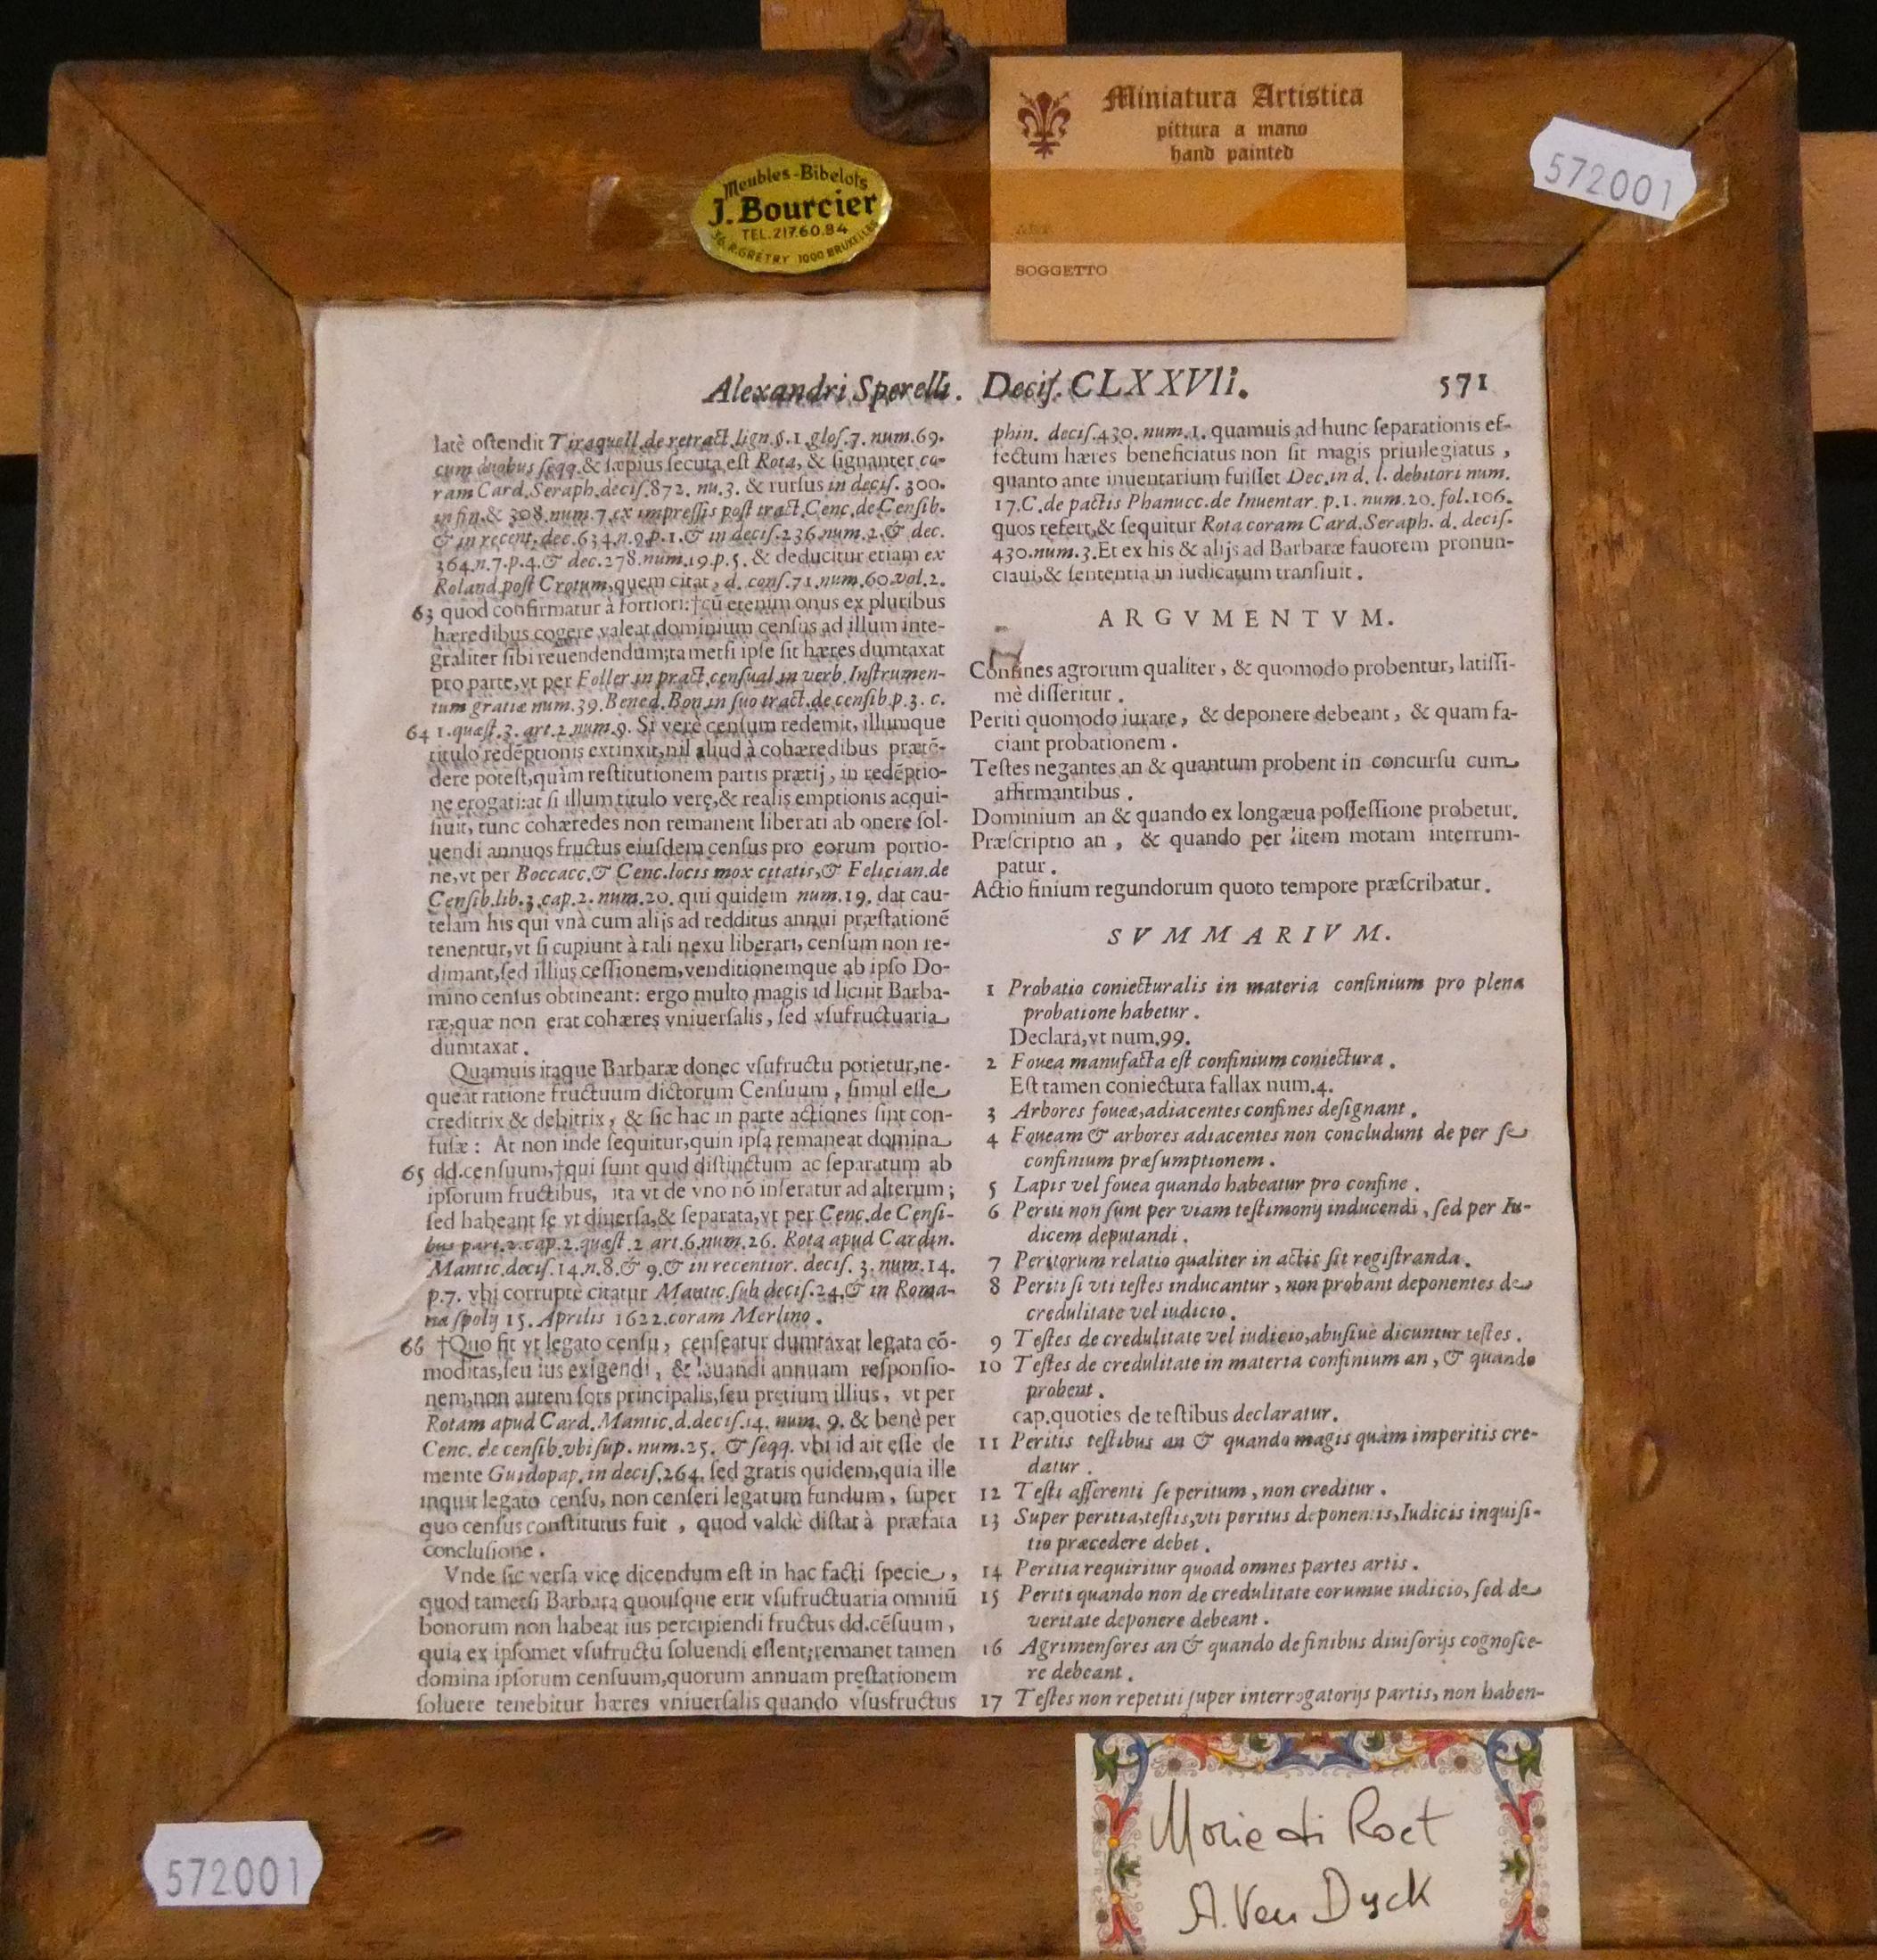 Miniatura Artistica
pittura a mano
hand painted
SOGGETTO
572001
Meubles-Bibelots
J. Bourcier
TEL. 217.60.84
36, R. GRÉTRY 1000 BRUXELLES
Alexandri Sperelli. Decis. CLXXVII. 571
latè ostendit Tiraquell. de retract. lign. §. 1. glos. 7. num. 69.
cum duobus seqq. & sæpius secuta est Rota, & signanter co-
ram Card. Seraph. decis. 872. nu. 3. & rursus in decis. 300.
in fin. & 308. num. 7. ex impressis post tract. Cenc. de Censib.
& in recent. dec. 634. n. 9. p. 1. & in decis. 236. num. 2. & dec.
364. n. 7. p. 4. & dec. 278. num. 19. p. 5. & deducitur etiam ex
Roland. post Crotum, quem citat, d. cons. 71. num. 60. vol. 2.
63 quod confirmatur à fortiori: †cū etenim onus ex pluribus
hæredibus cogere valeat dominium census ad illum inte-
graliter sibi reuendendum; tametsi ipse sit hæres dumtaxat
pro parte, vt per Foller. in pract. censual. in verb. Instrumen-
tum gratiæ num. 39. Bened. Bon. in suo tract. de censib. p. 3. c.
64 1. quæst. 3. art. 2. num. 9. Si verè censum redemit, illumque
titulo redēptionis extinxit, nil aliud à cohæredibus prætē-
dere potest, quàm restitutionem partis prætij, in redēptio-
ne erogati: at si illum titulo veræ, & realis emptionis acqui-
siuit, tunc cohæredes non remanent liberati ab onere sol-
uendi annuos fructus eiusdem census pro eorum portio-
ne, vt per Boccacc. & Cenc. locis mox citatis, & Felician. de
Censib. lib. 3. cap. 2. num. 20. qui quidem num. 19. dat cau-
telam his qui vnà cum alijs ad redditus annui præstationē
tenentur, vt si cupiunt à tali nexu liberari, censum non re-
dimant, sed illius cessionem, venditionemque ab ipso Do-
mino census obtineant: ergo multo magis id licuit Barba-
ræ, quæ non erat cohæres vniuersalis, sed vsufructuaria
dumtaxat.
Quamuis itaque Barbaræ donec vsufructu potietur, ne-
queat ratione fructuum dictorum Censuum, simul esse
creditrix & debitrix, & sic hac in parte actiones sint con-
fusæ: At non inde sequitur, quin ipsa remaneat domina
65 dd. censuum, †qui sunt quid distinctum ac separatum ab
ipsorum fructibus, ita vt de vno nō inferatur ad alterum;
sed habeant se vt diuersa, & separata, vt per Cenc. de Censi-
bus part. 2. cap. 2. quæst. 2 art. 6. num. 26. Rota apud Cardin.
Mantic. decis. 14. n. 8. & 9. & in recentior. decis. 3. num. 14.
p. 7. vbi corruptè citatur Mantic. sub decis. 24. & in Roma-
na spolij 15. Aprilis 1622. coram Merlino.
66 †Quo fit vt legato censu, censeatur dumtaxat legata cō-
moditas, seu ius exigendi, & leuandi annuam responsio-
nem, non autem sors principalis, seu pretium illius, vt per
Rotam apud Card. Mantic. d. decis. 14. num. 9. & benè per
Cenc. de censib. vbi sup. num. 25. & seqq. vbi id ait esse de
mente Guidopap. in decis. 264. sed gratis quidem, quia ille
inquit legato censu, non censeri legatum fundum, super
quo census constitutus fuit, quod valdè distat à præfata
conclusione.
Vnde sic versa vice dicendum est in hac facti specie,
quod tametsi Barbara quousque erit vsufructuaria omniū
bonorum non habeat ius percipiendi fructus dd. cēsuum,
quia ex ipsomet vsufructu soluendi essent; remanet tamen
domina ipsorum censuum, quorum annuam prestationem
soluere tenebitur hæres vniuersalis quando vsusfructus
phin. decis. 430. num. 1. quamuis ad hunc separationis ef-
fectum hæres beneficiatus non sit magis priuilegiatus,
quanto ante inuentarium fuisset Dec. in d. l. debitori num.
17. C. de pactis Phanucc. de Inuentar. p. 1. num. 20. fol. 106.
quos refert, & sequitur Rota coram Card. Seraph. d. decis.
430. num. 3. Et ex his & alijs ad Barbaræ fauorem pronun-
ciaui, & sententia in iudicatum transiuit.
ARGVMENTVM.
Confines agrorum qualiter, & quomodo probentur, latissi-
mè disseritur.
Periti quomodo iurare, & deponere debeant, & quam fa-
ciant probationem.
Testes negantes an & quantum probent in concursu cum
affirmantibus.
Dominium an & quando ex longæua possessione probetur.
Præscriptio an, & quando per litem motam interrum-
patur.
Actio finium regundorum quoto tempore præscribatur.
SVMMARIVM.
1 Probatio coniecturalis in materia confinium pro plena
probatione habetur.
Declara, vt num. 99.
2 Fouea manufacta est confinium coniectura.
Est tamen coniectura fallax num. 4.
3 Arbores foueæ, adiacentes confines designant.
4 Foueam & arbores adiacentes non concludunt de per se
confinium præsumptionem.
5 Lapis vel fouea quando habeatur pro confine.
6 Periti non sunt per viam testimonij inducendi, sed per Iu-
dicem deputandi.
7 Peritorum relatio qualiter in actis sit registranda.
8 Periti si vti testes inducantur, non probant deponentes de
credulitate vel iudicio.
9 Testes de credulitate vel iudicio, abusiuè dicuntur testes.
10 Testes de credulitate in materia confinium an, & quando
probent.
cap. quoties de testibus declaratur.
11 Peritis testibus an & quando magis quàm imperitis cre-
datur.
12 Testi asserenti se peritum, non creditur.
13 Super peritia, testis, vti peritus deponentis, Iudicis inquisi-
tio præcedere debet.
14 Peritia requiritur quoad omnes partes artis.
15 Periti quando non de credulitate eorumue iudicio, sed de
veritate deponere debeant.
16 Agrimensores an & quando de finibus diuisorijs cognosce-
re debeant.
17 Testes non repetiti super interrogatorijs partis, non haben-
572001
Marie di Raet
A. Van Dyck